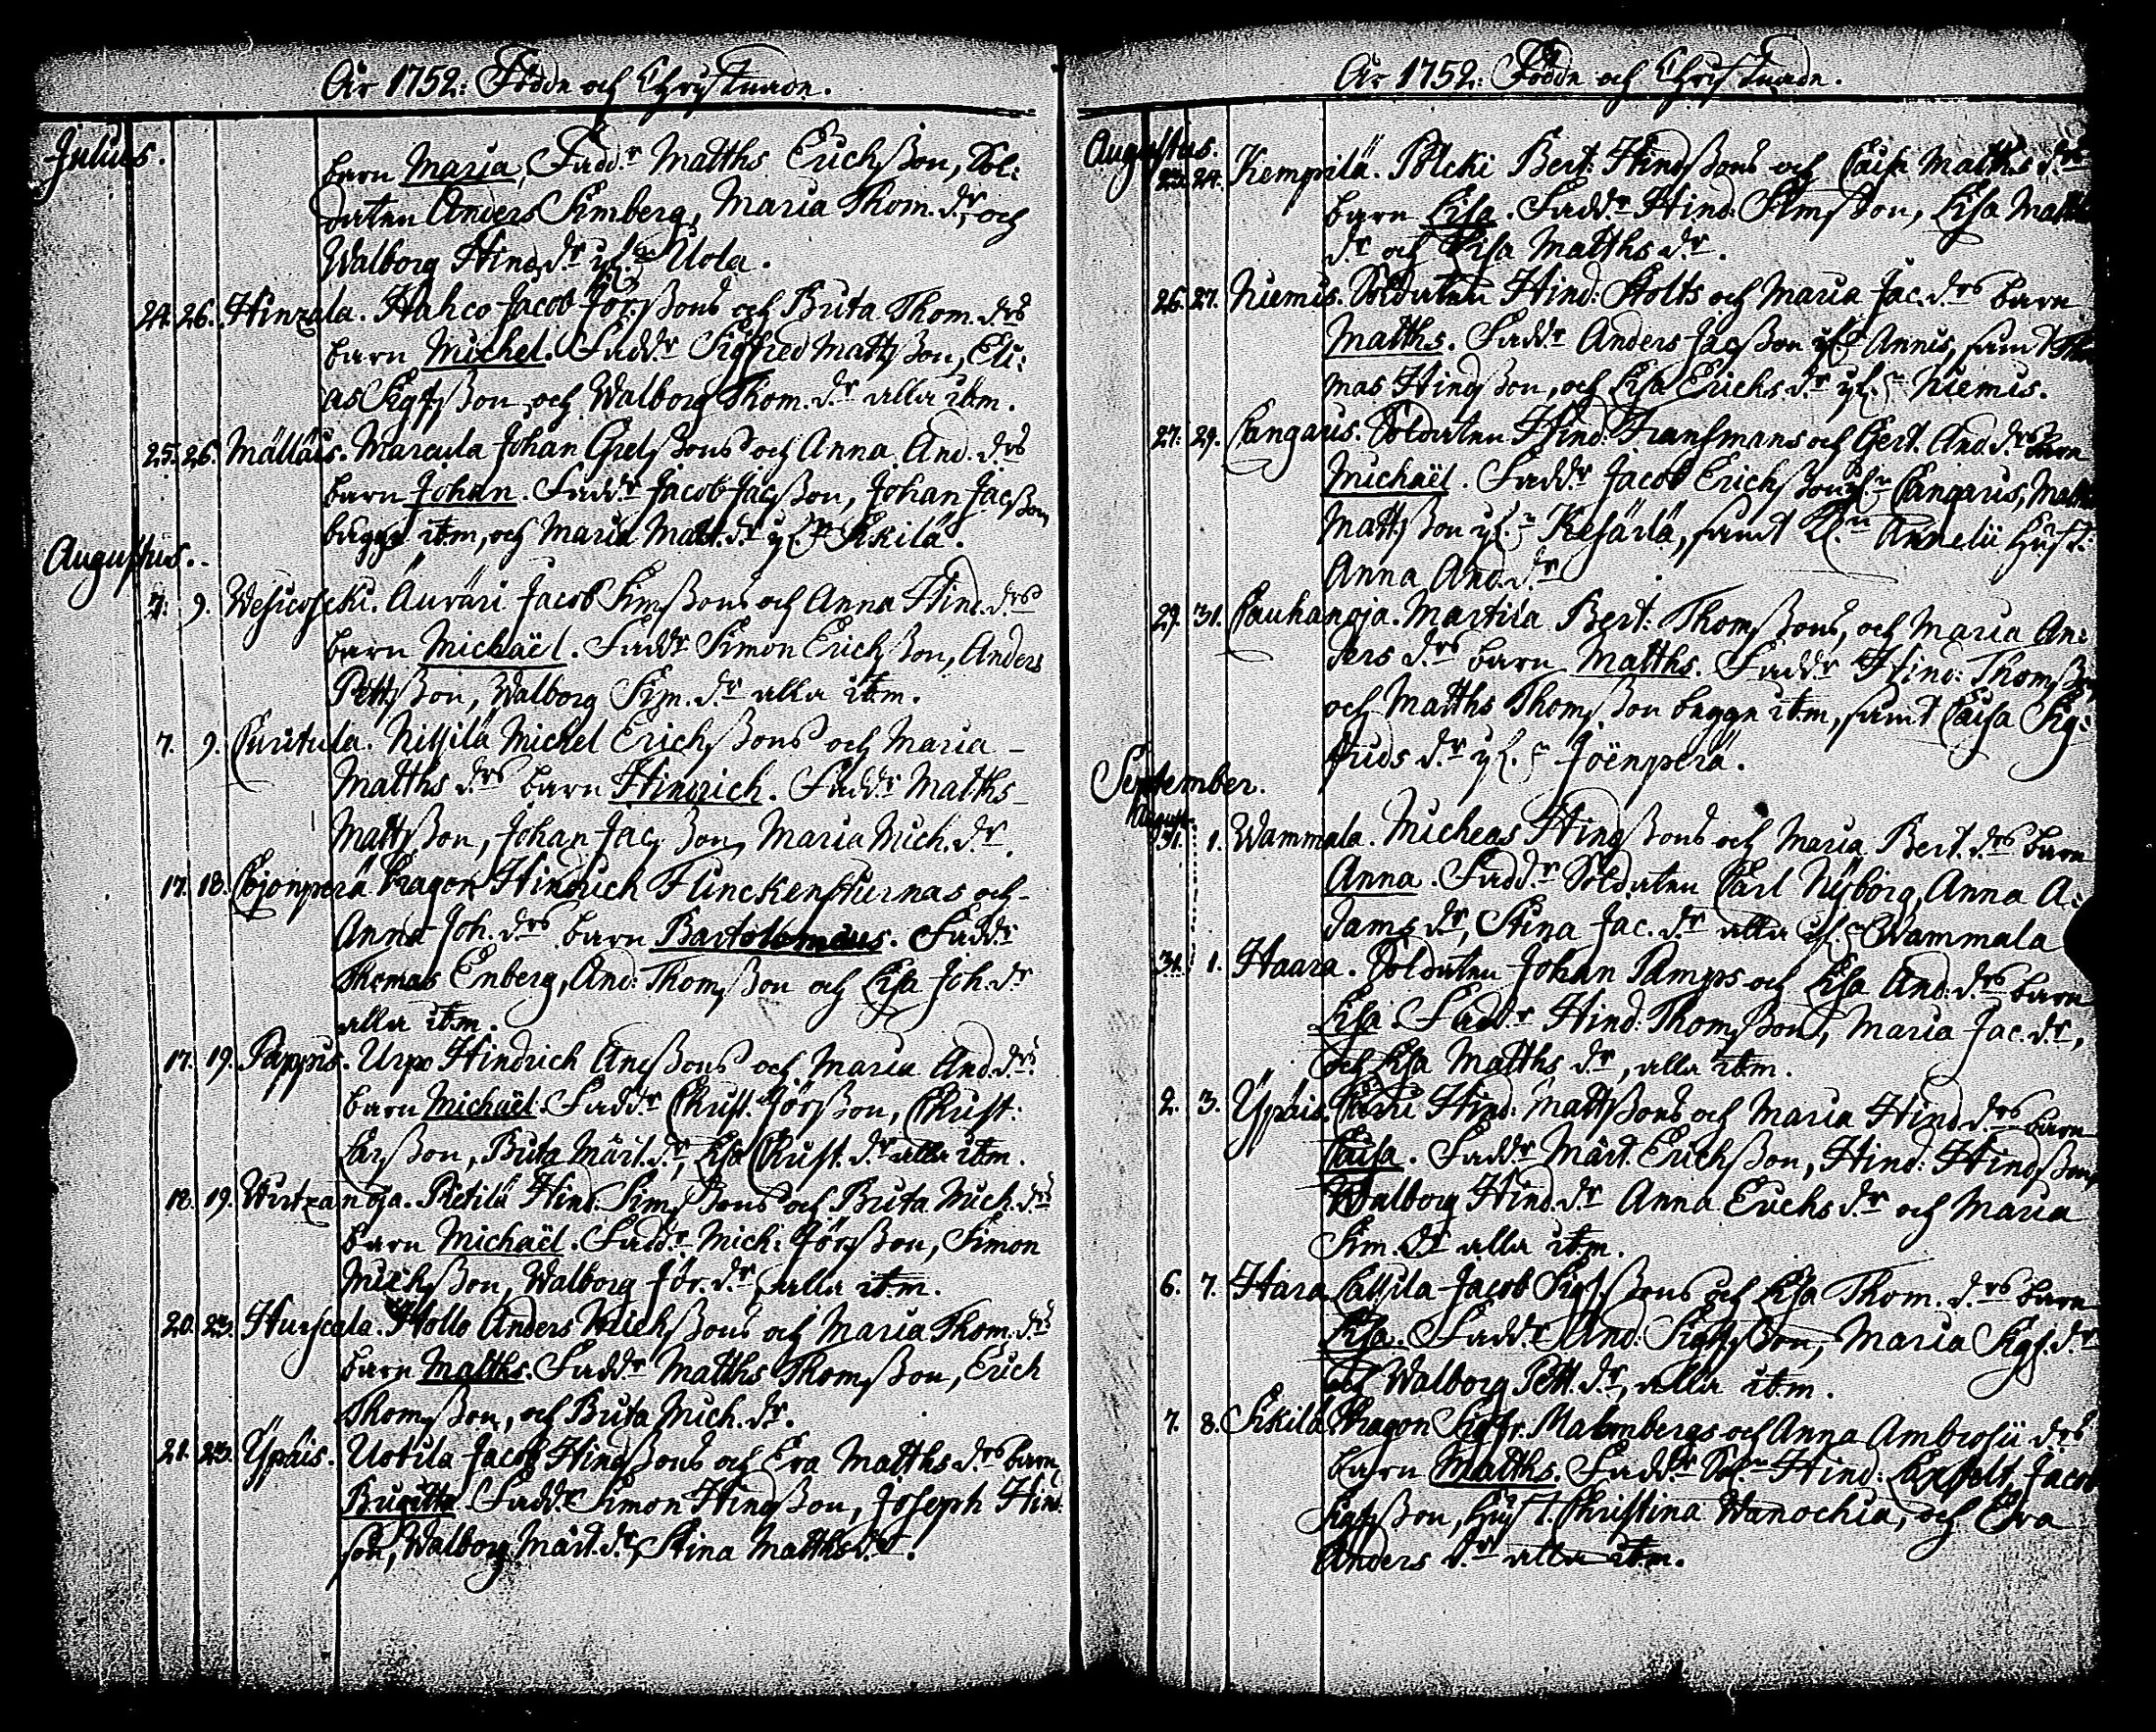 År 1752: Födde och Christnade.
Julius.
barn Maria, Fadd:r Matths Erichsson, Sol:
daten Anders Simberg, Maria Thom. d:r, och
Walborg Hind. d:r Uola.
24. 26. Hinzala. Hahco Jacob Jörssons och Brita Thom. d:rs
barn Michel. Fadd:r Sigfred Mattsson, Eli:
as Sigfsson och Walborg Thom. d:r alla ibm.
25. 26. Mälläis. Marcula Johan Grelssons och Anna And. d:rs
barn Johan. Fadd:r Jacob Jacsson, Johan Jacsson
bägge ibm, och Maria Matt. d:r Sikilä.
Augustus.
7. 9. Wesicoscki. Äuräri Jacob Simssons och Anna Hind. d:rs
barn Michaël. Fadd:r Simon Erichsson, Anders
Pettsson, Walborg Sim. d:r alla ibm.
7. 9. Puritula. Nissilä Michel Erichssons och Maria
Matths d:rs barn Hindrich. Fadd:r Matths
Mattsson, Johan Jacsson, Maria Mich. d:r.
17. 18. Cojonperä Dragon Hindrich Flinckenstiernas och
Anna Joh. d:rs barn Bartolomæus. Fadd:r
Thomas Enberg, And: Thomsson och Lisa Joh. d:r
alla ibm.
17. 19. Pappis. Urpo Hindrich Andssons och Maria And. d:rs
barn Michaël. Fadd:r Christ. Jörsson, Christ:
Larsson, Brita Märt. d:r, Lisa Christ. d:r alla ibm.
18. 19. Wirtzanoja. Pietilä Hind. Simssons och Brita Mich. d:rs
barn Michaël. Fadd:r Mich: Jörsson, Simon
Michsson, Walborg Jör. d:r, alla ibm.
20. 23. Hurscala. Hollo Anders Michssons och Maria Thom. d:rs
barn Matths. Fadd:r Matths Thomsson, Erich
Thomsson, och Brita Mich. d:r.
21. 23. Ypäis. Uotila Jacob Hindssons och Eva Matths d:rs barn
Brigitta. Fadd:r Simon Hindsson, Joseph Hind.
son, Walborg Märt. d:r, Stina Matths d:r.
År 1752: Födde och Christnade.
Augustus.
23. 24. Kempilä. Pölcki Bert: Hindssons och Caisa Matths d:rs
barn Lisa. Fadd:r Hind: Simsson, Lisa Matths
d:r och Lisa Matths d:r.
26. 27. Niemis. Soldaten Hind: Stolts och Maria Jac. d:rs barn
Matths. Fadd:r Anders Jacsson Annis, samt Tho
mas Hindsson, och Lisa Erichs d:r Niemis.
27. 29. Cangaris. Soldaten Hind: Fransmans och Gert. And. d:rs barn
Michaël. Fadd:r Jacob Erichsson Cangaris, Matths
Mattsson Kesärlä, samt Annelii Hust:
Anna And. d:r
29. 31. Cauhanoja. Martila Bert: Thomssons, och Maria An:
ders d:rs barn Matths. Fadd:r Hind: Thomsson
och Matths Thomsson begge ibm, samt Caisa Sig:
frids d:r Joënperä.
September.
August.
31. 1. Wammala. Micheas Hindssons och Maria Bert. d:rs barn
Anna. Fadd:r Soldaten Carl Nyborg, Anna A:
dams d:r, Stina Jac. d:r alla Wammala
31. 1. Haara. Soldaten Johan Pamps och Lisa And. d:rs barn
Lisa. Fadd:r Hind: Thomsson, Maria Jac. d:r,
och Lisa Matths d:r, alla ibm.
2. 3. Ypäis. Hind: Mattssons och Maria Hind. d:rs barn
Caisa. Fadd:r Märt. Erichsson, Hind: Hindsson,
Walborg Hind. d:r Anna Erichs d:r och Maria
Sim. d:r alla ibm.
6. 7. Hara Jacob Sigfssons och Lisa Thom. d:rs barn
Lisa. Fadd:r And: Sigfsson, Maria Sigf. d:r
och Walborg Pett. d:r, alla ibm.
7. 8. Sikilä Dragon Sigfr. Malmbergs och Anna Ambrosii d:rs
barn Matths. Fadd:r Hind: Jacob
Sigfsson, Hust. Christina Wanochia, och Eva
Anders d:r alla ibm.